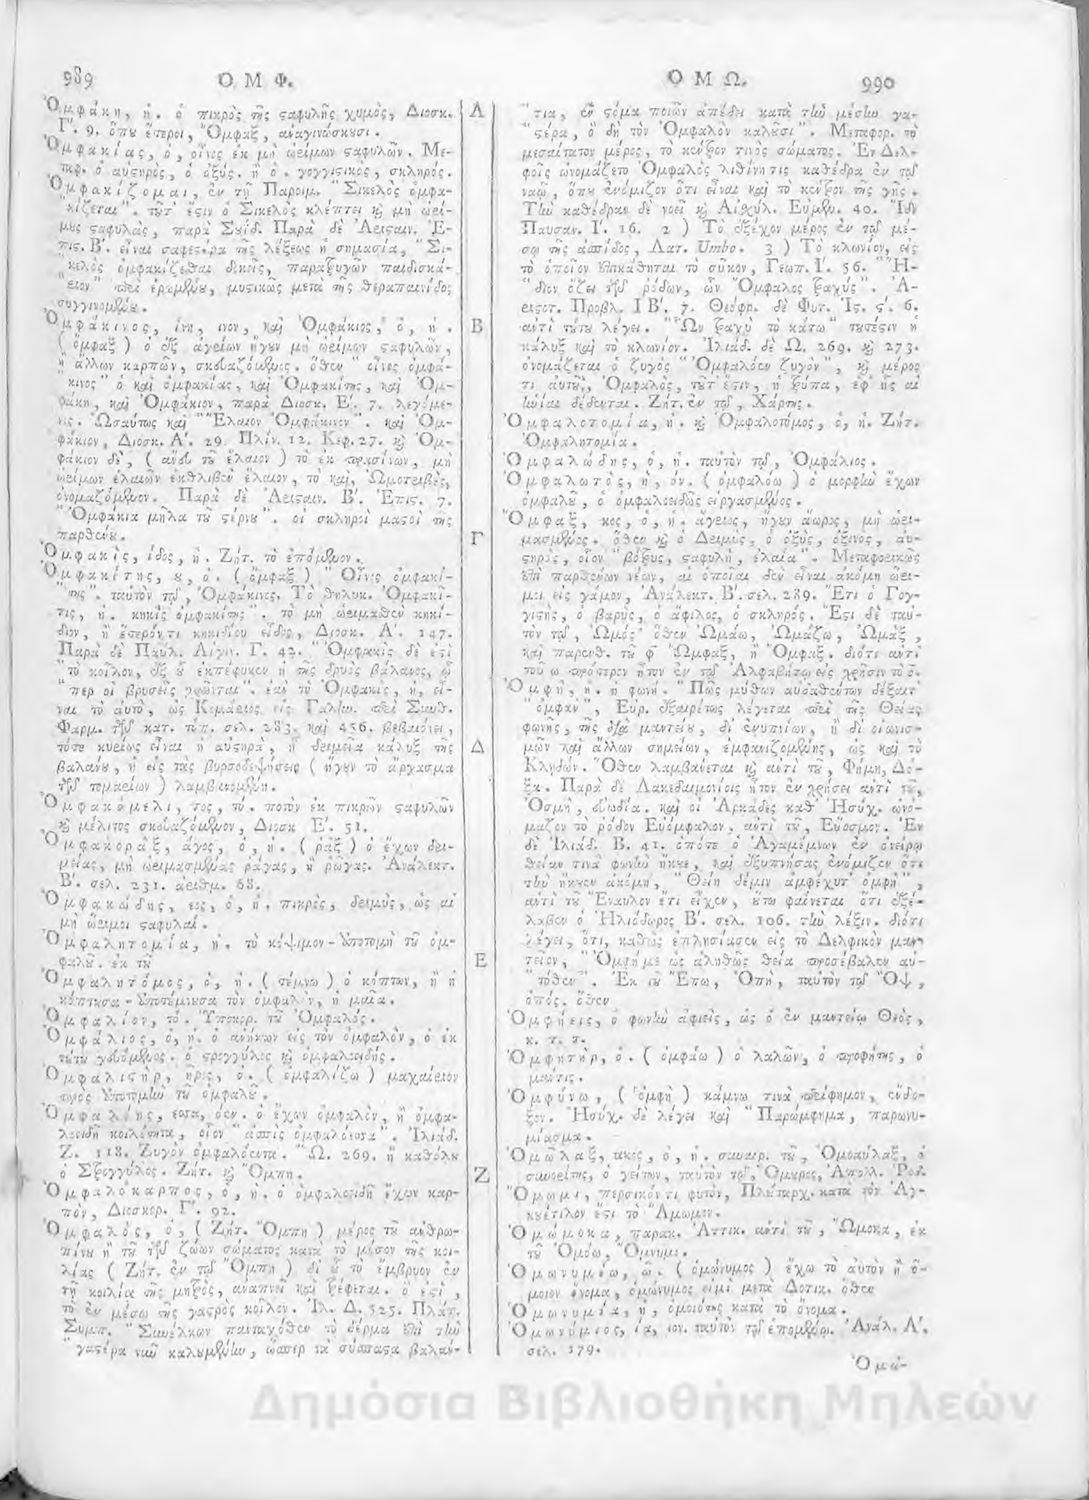 989 Ο Μ Φ.
Ὀμφάκη, ἡ. ὁ πικρὸς τῆς σαφυλῆς χυμὸς, Διοσκ.
Γ΄. 9. ὅπου ἕτεροι, Ὄμφαξ, ἀναγινώσκουσι.
Ὀμφακίας, ὁ, οἶνος ἐκ μὴ ὠρίμων σταφυλῶν. Με-
ταφ. ὁ αὐστηρὸς, ὁ ὀξύς. ἢ ὁ. γογγιστικὸς, σκληρός.
Ὀμφακίζομαι, ἐν τῇ Παροιμ. "Σικελὸς ὀμφα-
"κίζεται". τοῦτ' ἔστιν ὁ Σικελὸς κλέπτει καὶ μὴ ὠρί-
μους σταφυλὰς, παρὰ Σουΐδ. Παρὰ δὲ Ἀρισταιν. Ἐ-
πιστ. Β΄. εἶναι σαφεστέρα τῆς λέξεως ἡ σημασία, "Σι-
"κελὸς ὀμφακίζεσθαι δοκεῖς, παρατρυγῶν παιδισκά-
μυστικῶς μετὰ τῆς θεραπαινίδος
συγγινομένου.
Ὀμφάκινος, ίνη, ινον, καὶ Ὀμφάκιος, ὁ, ἡ.
(ὄμφαξ) ὁ ἐξ ἀγρίων ἤγουν μὴ ὠρίμων σταφυλῶν,
ἢ ἄλλων καρπῶν, σκευαζόμενος. ὅθεν "οἶνος ὀμφά-
"κινος" ὁ καὶ ὀμφακίας, καὶ Ὀμφακίτης, καὶ Ὀμ-
φάκη, καὶ Ὀμφάκιον, παρὰ Διοσκ. Ε΄. 7. λεγόμε-
νος. Ὡσαύτως καὶ "Ἔλαιον Ὀμφάκινον". καὶ Ὀμ-
φάκιον, Διοσκ. Α΄. 29. Πλίν. 12. Κεφ. 27. καὶ Ὀμ-
φάκιον δὲ, (ἄνευ τοῦ ἔλαιον) τὸ ἐκ πρασίνων, μὴ
ὠρίμων ἐλαιῶν ἐκθλιβὲν ἔλαιον, τὸ καὶ, Ὠμοτριβὲς,
ὀνομαζόμενον. Παρὰ δὲ Ἀρισταιν. Β΄. Ἐπιστ. 7.
"Ὀμφάκια μῆλα τοῦ στέρνου". οἱ σκληροὶ μαστοὶ τῆς
παρθένου.
Ὀμφακὶς, ίδος, ἡ. Ζήτ. τὸ ἑπόμενον.
Ὀμφακίτης, ου, ὁ. (ὄμφαξ) "Οἶνος ὀμφακί-
"της". ταὐτὸν τῷ, Ὀμφάκινος. Τὸ θηλυκ. Ὀμφακῖ-
τις, ἡ. "κηκὶς ὀμφακῖτις". τὸ μὴ ὡριμασθὲν κηκί-
διον, ἢ ἕτερόν τι κηκιδίου εἶδος, Διοσκ. Α΄. 147.
Παρὰ δὲ Παύλ. Αἰγιν. Γ. 42. "Ὀμφακὶς δέ ἐστι
"τὸ κοῖλον, ἐξ οὗ ἐκπέφυκεν ἡ τῆς δρυὸς βάλανος, ᾧ
"περ οἱ βυρσεῖς χρῶνται". ἐὰν τὸ Ὀμφακὶς, ἡ, εἶ-
ναι τὸ αὐτὸ, ὡς Κομάριος εἰς Γαλην. περὶ Συνθ.
Φαρμ. τῶν κατ. τόπ. σελ. 283. καὶ 456. βεβαιόνει,
τότε κυρίως εἶναι ἡ αὐστηρὰ, ἢ δριμεῖα κάλυξ τῆς
βαλάνου, ἡ εἰς τὰς βυρσοδεψήσεις (ἤγουν τὸ ἄργασμα
τῶν τομαρίων) λαμβανομένη.
Ὀμφακόμελι, τος, τό. ποτὸν ἐκ πικρῶν σταφυλῶν
καὶ μέλιτος σκευαζόμενον, Διοσκ. Ε΄. 31.
Ὀμφακορὰξ, άγος, ὁ, ἡ. (ρὰξ) ὁ ἔχων δρι-
μείας, μὴ ὡριμασμένας ράγας, ἢ ρῶγας. Ἀνάλεκτ.
Β΄. σελ. 231. ἀριθμ. 68.
Ὀμφακώδης, εος, ὁ, ἡ. πικρὸς, δριμὺς, ὡς αἱ
μὴ ὥριμοι σταφυλαί.
Ὀμφαλητομία, ἡ. τὸ κόψιμον-ἀποτομὴ τοῦ ὀμ-
φαλοῦ. ἐκ τοῦ
Ὀμφαλητόμος, ὁ, ἡ. (τέμνω) ὁ κόπτων, ἢ ἡ
κόπτουσα-ἀποτέμνουσα τὸν ὀμφαλόν, ἡ μαῖα.
Ὀμφάλιον, τό. Ὑποκορ. τοῦ Ὀμφαλός.
Ὀμφάλιος, ὁ, ἡ. ὁ ἀνήκων εἰς τὸν ὀμφαλὸν, ὁ ἐκ
τούτου γενόμενος. ὁ στρογγύλος καὶ ὀμφαλοειδής.
Ὀμφαλιστὴρ, ῆρος, ὁ. (ὀμφαλίζω) μαχαίριον
πρὸς ἀποτομὴν τοῦ ὀμφαλοῦ.
Ὀμφαλόεις, εσσα, όεν. ὁ ἔχων ὀμφαλὸν, ἢ ὀμφα-
λοειδῆ κοιλότητα, οἷον "ἀσπὶς ὀμφαλόεσσα". Ἰλιάδ.
Ζ. 118. Ζυγὸν ὀμφαλόεντα. "Ω. 269. ἢ καθόλου
ὁ Στρογγύλος. Ζήτ. καὶ Ὄμπη.
Ὀμφαλόκαρπος, ὁ, ἡ. ὁ ὀμφαλοειδῆ ἔχων καρ-
πὸν, Διοσκορ. Γ΄. 92.
Ὀμφαλὸς, ὁ, (Ζήτ. Ὄμπη) μέρος τοῦ ἀνθρω-
πίνου ἢ τοῦ τῶν ζώων σώματος κατὰ τὸ μέσον τῆς κοι-
λίας (Ζήτ. ἐν τῷ Ὄμπη) δι' οὗ τὸ ἔμβρυον ἐν
τῇ κοιλίᾳ τῆς μητρὸς, ἀναπνεῖ καὶ τρέφεται. ὅ ἐστι,
τὸ ἐν μέσῳ τῆς γαστρὸς κοῖλον. Ἰλ. Δ. 525. Πλάτ.
Συμπ. "Συνέλκων πανταχόθεν τὸ δέρμα ἐπὶ τὴν
"γαστέρα νῦν καλουμένην, ὥσπερ τὰ σύσπαστα βαλάν-
Α
Β
Γ
Δ
Ε
Ζ
Ο Μ Ω. 990
"τια, ἓν στόμα ποιῶν ἀπέδει κατὰ τὴν μέσην γα-
"στέρα, ὃ δὴ τὸν Ὀμφαλὸν καλοῦσι". Μεταφορ. τὸ
μεσαίτατον μέρος, τὸ κέντρον τινὸς σώματος. Ἐν Δελ-
φοῖς ὠνομάζετο Ὀμφαλὸς λιθίνη τις καθέδρα ἐν τῷ
ναῷ, ὅπου ἐνόμιζον ὅτι εἶναι καὶ τὸ κέντρον τῆς γῆς.
Τὴν καθέδραν δὲ νοεῖ καὶ Αἰσχύλ. Εὐμεν. 40. Ἰδὲ
Παυσαν. Ι΄. 16. 2) Τὸ ἐξέχον μέρος ἐν τῷ μέ-
σῳ τῆς ἀσπίδος, Λατ. Umbo. 3) Τὸ κλωνίον, εἰς
τὸ ὁποῖον ἐπικάθηται τὸ σῦκον, Γεωπ. Ι΄. 56. "Ἥ-
"διον ὄζει τῶν ρόδων, ὧν Ὀμφαλὸς τραχύς". Ἀ-
ριστοτ. Προβλ. ΙΒ΄. 7. Θεόφρ. δὲ Φυτ. Ἱστ. ς΄. 6.
ἀντὶ τούτου λέγει. "Ὧν τραχὺ τὸ κάτω" τουτέστιν ἡ
κάλυξ καὶ τὸ κλωνίον. Ἰλιάδ. δὲ Ω. 269. καὶ 273.
ὀνομάζεται ὁ ζυγὸς "Ὀμφαλόεν ζυγὸν", καὶ μέρος
τι αὐτοῦ, Ὀμφαλὸς, τοῦτ' ἔστιν, ἡ τρύπα, ἐφ' ἧς αἱ
ἡνίαι δέδενται. Ζήτ. ἐν τῷ, Χάρτης.
Ὀμφαλοτομία, ἡ. καὶ Ὀμφαλοτόμος, ὁ, ἡ. Ζήτ.
Ὀμφαλητομία.
Ὀμφαλώδης, ὁ, ἡ. ταὐτὸν τῷ, Ὀμφάλιος.
Ὀμφαλωτὸς, ὴ, όν. (ὀμφαλόω) ὁ μορφὴν ἔχων
ὀμφαλοῦ, ὁ ὀμφαλοειδῶς εἰργασμένος.
Ὄμφαξ, κος, ὁ, ἡ. ἄγριος, ἤγουν ἄωρος, μὴ ὡρι-
μασμένος. ὅθεν καὶ ὁ Δριμὺς, ὁ ὀξὺς, ὄξινος, αὐ-
στηρὸς, οἷον "βότρυς, σταφυλὴ, ἐλαία". Μεταφορικῶς
ἐπὶ παρθένων νέων, αἱ ὁποῖαι δὲν εἶναι ἀκόμη ὥρι-
μοι εἰς γάμον, Ἀνάλεκτ. Β΄. σελ. 289. Ἔτι ὁ Γογ-
γιστὴς, ὁ βαρὺς, ὁ ἄφιλος, ὁ σκληρός. Ἔστι δὲ ταὐ-
τὸν τῷ, Ὠμός· ὅθεν Ὠμάω, Ὠμάζω, Ὠμὰξ,
καὶ παρενθ. τοῦ φ Ὤμφαξ, ἢ Ὄμφαξ. διότι ἀντὶ
τοῦ ω πρότερον ἦτον ἐν τῷ Ἀλφαβήτῳ εἰς χρῆσιν τὸ ο.
Ὀμφὴ, ἡ. ἡ φωνή. "Πῶς μύθων αὐδαθέντων δέξαιτ'
"ὀμφὰν", Εὐρ. ἐξαιρέτως λέγεται περὶ τῆς Θείας
φωνῆς, τῆς διὰ μαντείου, δι' ἐνυπνίων, ἢ δι' οἰωνισ-
μῶν καὶ ἄλλων σημείων, ἐμφανιζομένης, ὡς καὶ τὸ
Κληδών. Ὅθεν λαμβάνεται καὶ ἀντὶ τοῦ, Φήμη, Δό-
ξα. Παρὰ δὲ Λακεδαιμονίοις ἦτον ἐν χρήσει ἀντὶ τοῦ,
Ὀσμὴ, εὐωδία. καὶ οἱ Ἀρκάδες καθ' Ἡσύχ. ὠνό-
μαζον τὸ ρόδον Εὐόμφαλον, ἀντὶ τοῦ, Εὔοσμον. Ἐν
δὲ Ἰλιάδ. Β. 41. ὁπότε ὁ Ἀγαμέμνων ἐν ὀνείρῳ
θείαν τινὰ φωνὴν ἤκουε, καὶ ἐξυπνήσας ἐνόμιζεν ὅτι
τὴν ἤκουεν ἀκόμη, "Θείη δέ μιν ἀμφέχυτ' ὀμφὴ",
ἀντὶ τοῦ Ἔναυλον ἔτι εἶχεν, οὕτω φαίνεται ὅτι ἐξέ-
λαβεν ὁ Ἡλιόδωρος Β΄. σελ. 106. τὴν λέξιν. διότι
λέγει, ὅτι, καθὼς ἐπλησίασεν εἰς τὸ Δελφικὸν μαν-
τεῖον, "Ὀμφή με ὡς ἀληθῶς θεία προσέβαλεν αὐ-
"τόθεν". Ἐκ τοῦ Ἔπω, Ὀπὴ, ταὐτὸν τῷ Ὂψ,
ὀπός. ὅθεν
Ὀμφήεις, ὁ φωνὴν ἀφιεὶς, ὡς ὁ ἐν μαντείῳ Θεὸς,
κ. τ. τ.
Ὀμφητὴρ, ὁ. (ὀμφάω) ὁ λαλῶν, ὁ προφήτης, ὁ
μάντις.
Ὀμφύνω, (ὀμφὴ) κάμνω τινὰ περίφημον, ἔνδο-
ξον. Ἡσύχ. δὲ λέγει καὶ "Παρώμφημα, παρωνυ-
μίασμα.
Ὀμῶλαξ, ακος, ὁ, ἡ. συναιρ. τοῦ, Ὁμοαύλαξ, ὁ
συνορίτης, ὁ γείτων, ταὐτὸν τῷ, Ὅμορος, Ἀπολλ. Ῥοδ.
Ὄμωμι, περσικόν τι φυτὸν, Πλούταρχ. κατὰ τὸν Ἀγ-
κυέτιλον ἔστι τὸ Ἄμωμον.
Ὀμώμοκα, παρακ. Ἀττικ. ἀντὶ τοῦ, Ὤμοκα, ἐκ
τοῦ Ὀμόω, Ὄμνυμι.
Ὁμωνυμέω, ῶ. (ὁμώνυμος) ἔχω τὸ αὐτὸν ἢ ὅ-
μοιον ὄνομα, ὁμώνυμος εἰμὶ μετὰ Δοτικ. ὅθεν
Ὁμωνυμία, ἡ, ὁμοιότης κατὰ τὸ ὄνομα.
Ὁμωνύμιος, ία, ιον. ταὐτὸν τῷ ἑπομένῳ. Ἀνάλ. Α΄.
σελ. 179.
Ὁμώ-
Δημόσια Βιβλιοθήκη Μηλεών